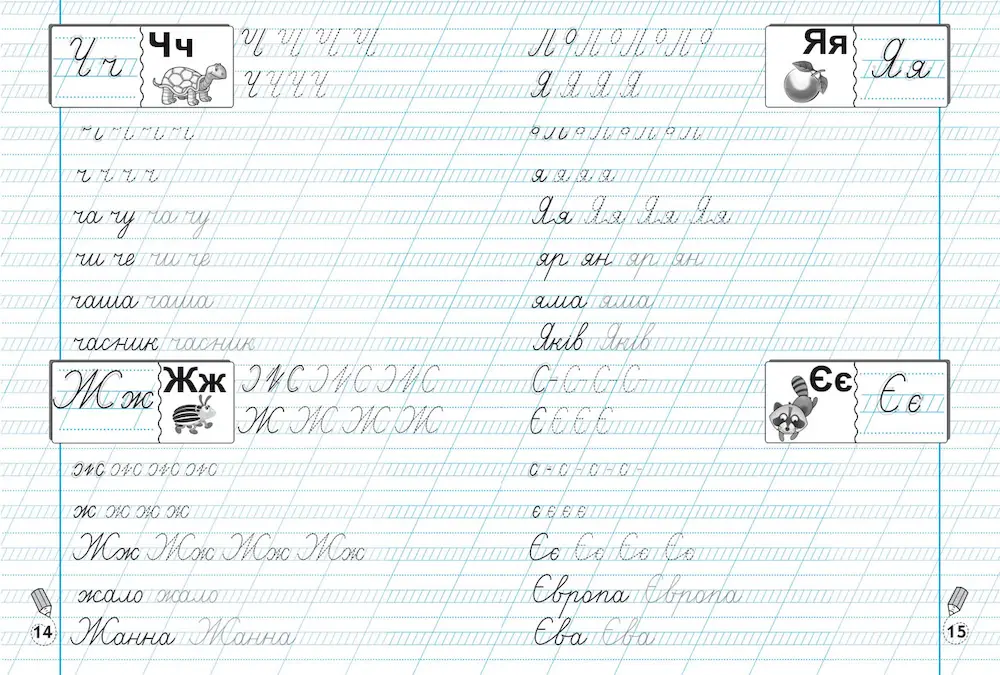 Ч ч Ч ч
Ч Ч Ч Ч
ч ч ч ч
ча чу ча чу
чи че чи че
чаша чаша
часник часник
Ж ж Ж ж
Ж Ж Ж Ж
ж ж ж ж
Жж Жж Жж Жж
жало жало
Жанна Жанна
14
Яя Я я
Я Я Я Я
я я я я
Яя Яя Яя Яя
яр ян яр ян
яма яма
Яків Яків
Єє Є є
Є Є Є Є
є є є є
Єє Єє Єє Єє
Європа Європа
Єва Єва
15